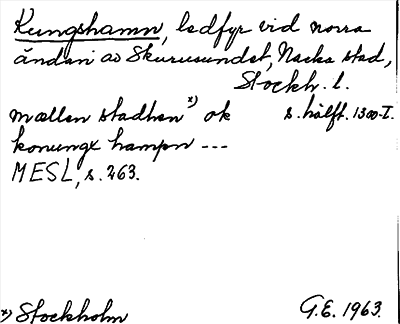 Kungshamn, ledfyr vid norra
ändan av Skurusundet, Nacka stad,
Stockh. l.
mællen stadhen x) ok s. hälft. 1300-t.
konungx hampn ---
MESL, s. 263.
x) Stockholm G.E. 1963.